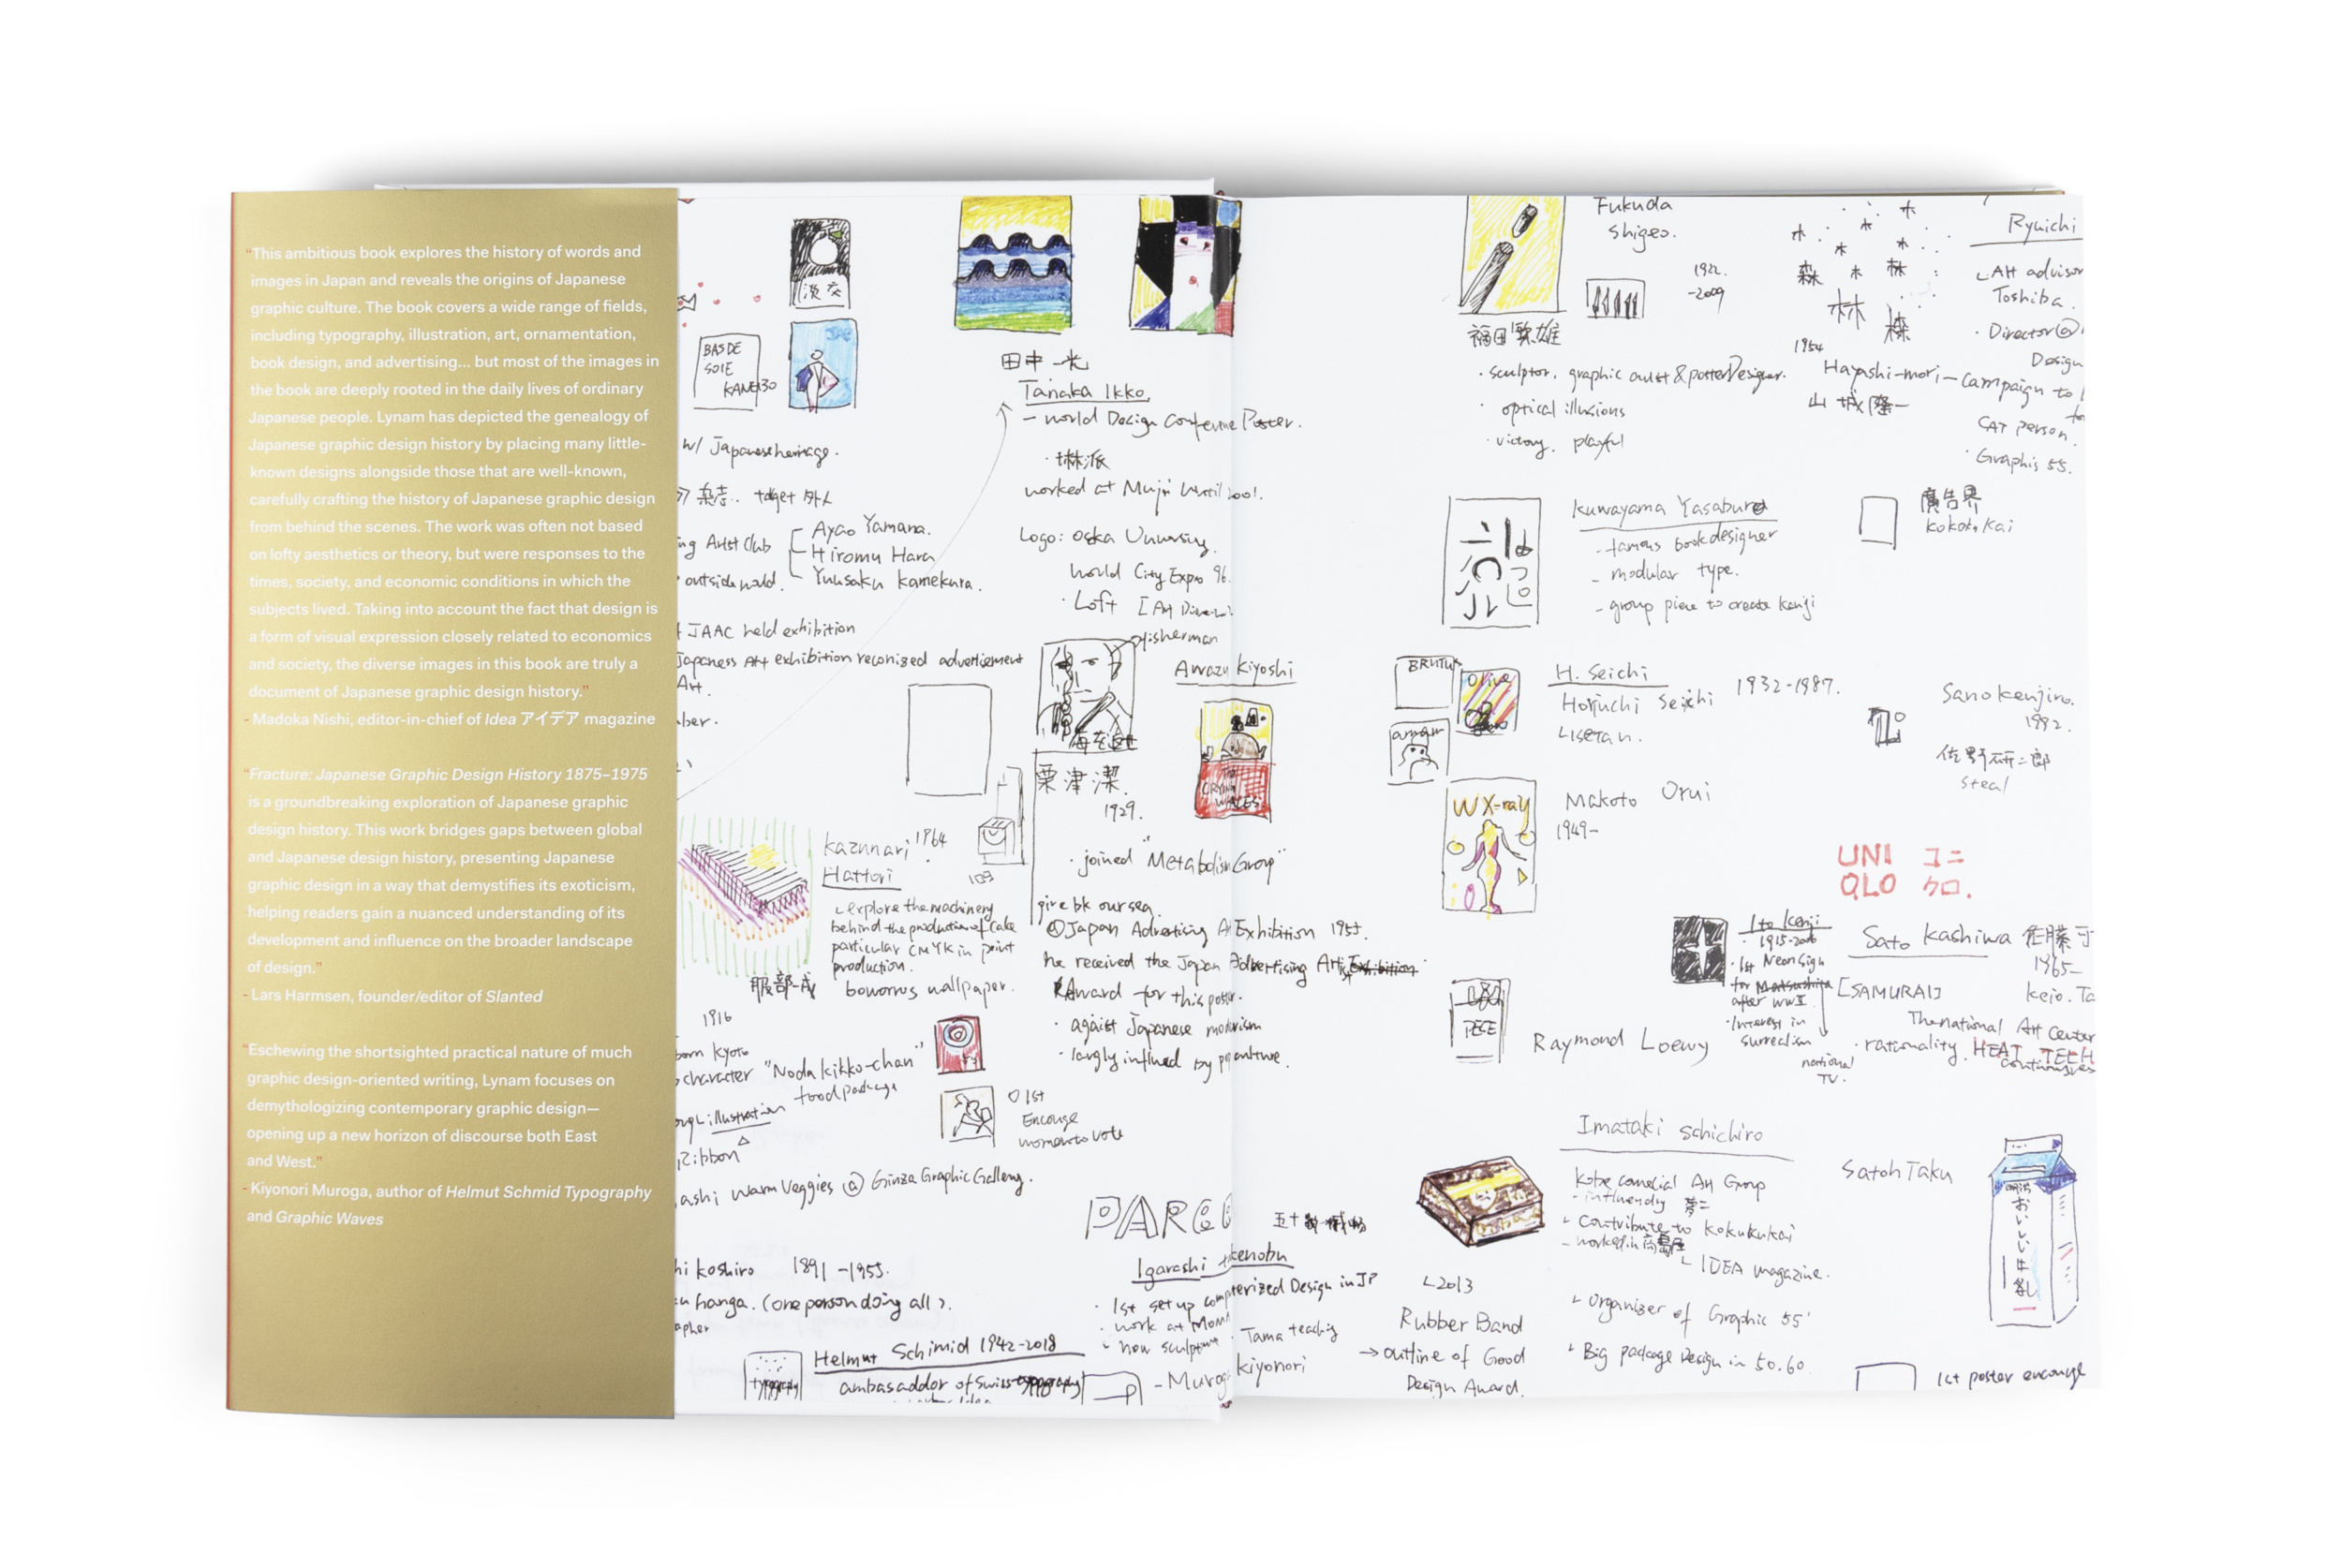 “This ambitious book explores the history of words and
images in Japan and reveals the origins of Japanese
graphic culture. The book covers a wide range of fields,
including typography, illustration, art, ornamentation,
book design, and advertising... but most of the images in
the book are deeply rooted in the daily lives of ordinary
Japanese people. Lynam has depicted the genealogy of
Japanese graphic design history by placing many little-
known designs alongside those that are well-known,
carefully crafting the history of Japanese graphic design
from behind the scenes. The work was often not based
on lofty aesthetics or theory, but were responses to the
times, society, and economic conditions in which the
subjects lived. Taking into account the fact that design is
a form of visual expression closely related to economics
and society, the diverse images in this book are truly a
document of Japanese graphic design history.”
- Madoka Nishi, editor-in-chief of Idea アイデア magazine
“Fracture: Japanese Graphic Design History 1875–1975
is a groundbreaking exploration of Japanese graphic
design history. This work bridges gaps between global
and Japanese design history, presenting Japanese
graphic design in a way that demystifies its exoticism,
helping readers gain a nuanced understanding of its
development and influence on the broader landscape
of design.”
- Lars Harmsen, founder/editor of Slanted
“Eschewing the shortsighted practical nature of much
graphic design-oriented writing, Lynam focuses on
demythologizing contemporary graphic design—
opening up a new horizon of discourse both East
and West.”
- Kiyonori Muroga, author of Helmut Schmid Typography
and Graphic Waves
淡交
BAS DE
SOIE
KANEBO
w/ Japanese heritage.
杂志.. target 外人
Artist Club
Ayao Yamana.
Hiromu Hara
Yuusaku Kamekura.
outside world.
JAAC held exhibition
Japaness Art exhibition reconized advertiement
Art.
田中一光
Tanaka Ikko
- world Design Conference Poster.
worked at Muji until 2001.
Logo: Osaka University.
World City Expo 96.
· Loft
fisherman
Awazu Kiyoshi
粟津潔.
1929.
THE
CRYING
WALES
· joined "Metabolism Group"
give bk our sea.
@Japan Advertising Art Exhibition 1955.
he received the Japan Advertising Artist Exhibition
Award for this poster.
· agaist Japanese modernism
109
Kazunari 1964
Hattori
explore the machinery
behind the production of Cake
particular CMYK in print
production.
服部一成
borrows wallpaper.
1916
born Kyoto
character "Noda kikko-chan"
food package
illustration
Ribbon
1st
Encouge
women to vote
Warm Veggies @ Ginza Graphic Gallery.
PARCO
Koshiro 1891-1955.
hanga. (one person doing all).
Helmut Schimid 1942-2018
typography
ambasaddor of Swiss typography
Igarashi Takenobu
· 1st set up computerized Design in JP
· work at MoMA
· now sculpture · Tama teaching
- Muroga Kiyonori
Fukuda
Shigeo.
1932.
-2009
福田繁雄
· sculptor, graphic artist & poster Designer.
· optical illusions
· victory. playful
木
森
林
1954
Hayashi-mori-campaign to
山城隆一
CAT person.
· Graphis 55.
Ryuichi
Art advisor
Toshiba.
· Director @
Design
Kuwayama Yasaburo
- famous book designer
- modular type.
- group piece to create kanji
廣告界
kokoku kai
BRUTUS
Olive
anan
H. Seichi
Horiuchi Seiichi 1932-1987.
ISETAN.
Sano Kenjiro.
steal
W X-ray
Makoto Orui
1949-
UNI ユニ
QLO クロ.
Ito Kenji
· 1915-2006
· 1st Neon Sign
for Matsushita
after WWII
· Interest in
surrealism
national
TV.
Sato Kashiwa 佐藤可
1965-
[SAMURAI]
The national Art Center
· rationality. HEAT TECH
PEACE
Raymond Loewy
Imataki Schichiro
Kobe comercial Art Group
- influend by 夢二
Contribute to kokukukai
- worked in 高島屋
IDEA magazine.
Organizer of Graphic 55'
Big package Design in 50.60.
2013
Rubber Band
→ outline of Good
Design Award.
Satoh Taku
明治
おいしい牛乳
1st poster encourge